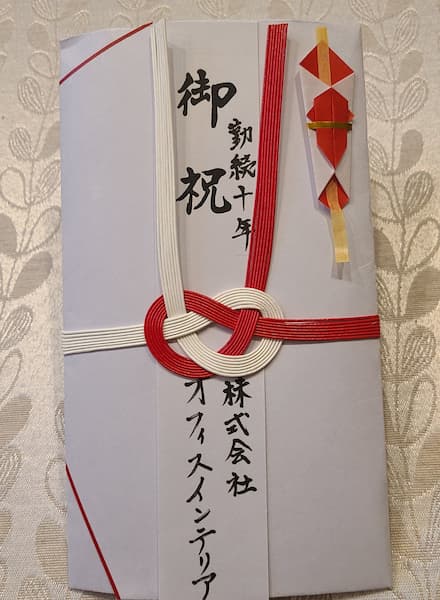 勤続十年
御祝
株式会社
オフィスインテリア